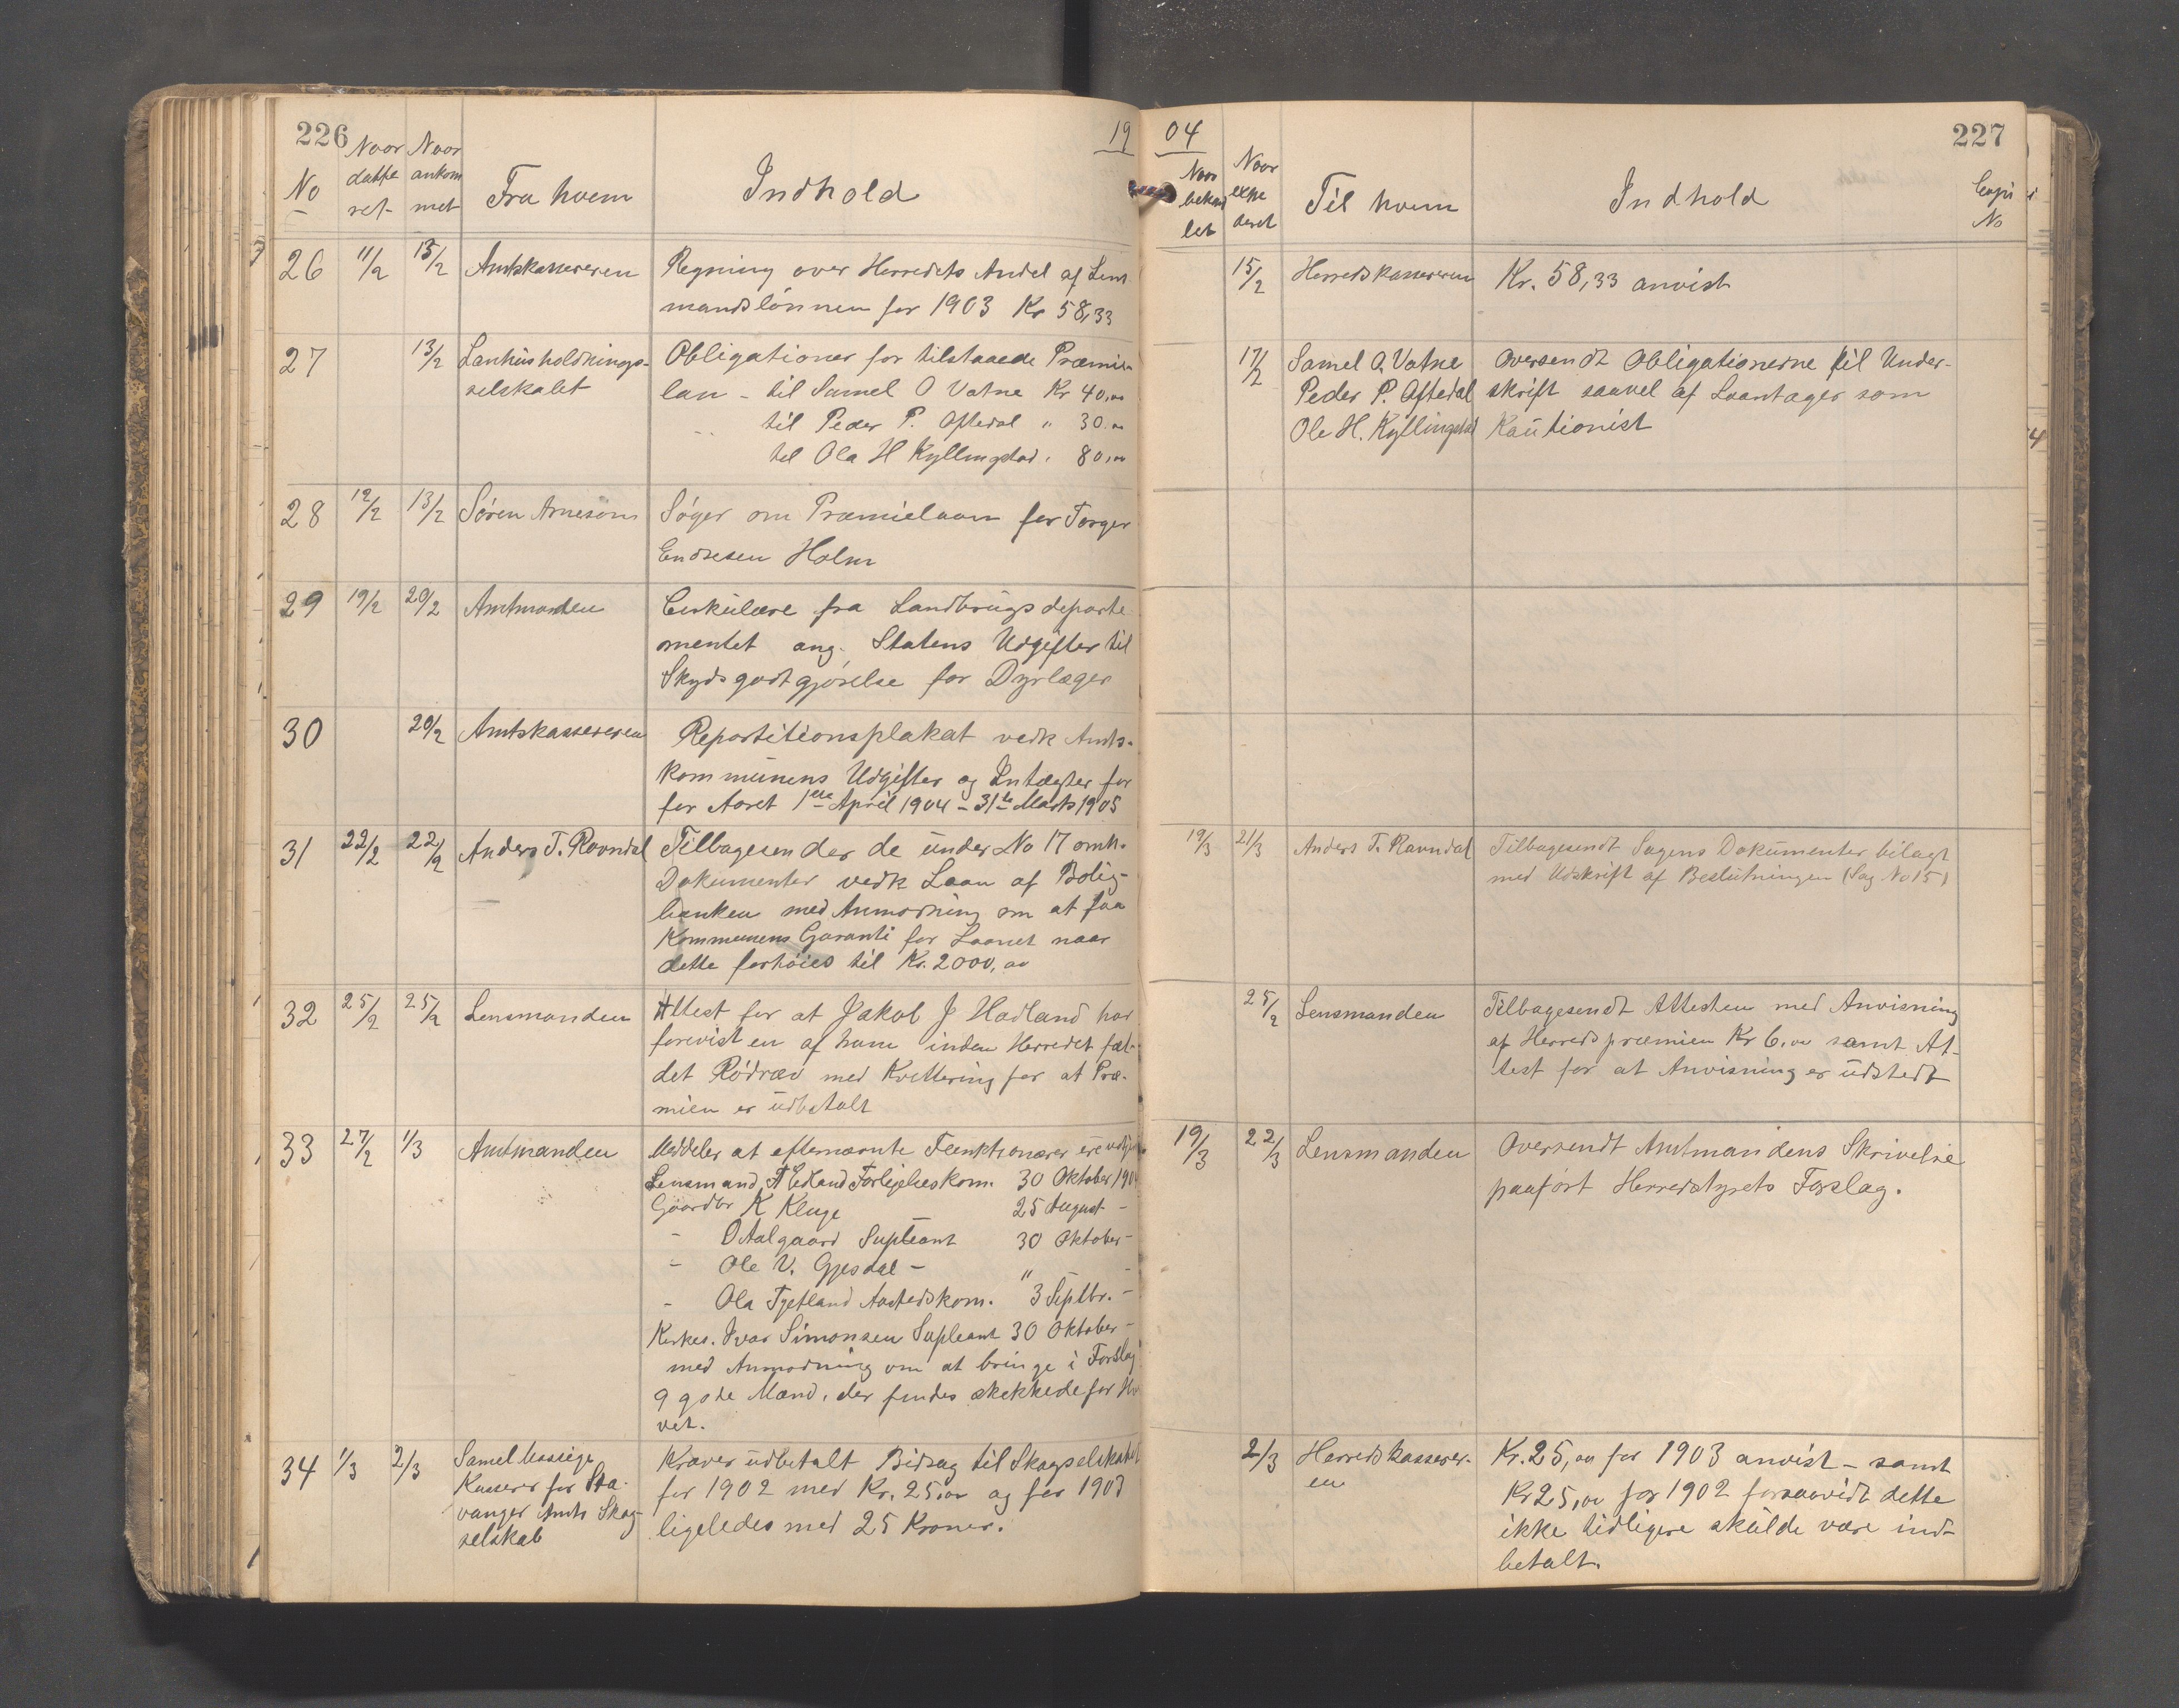 226
19
No
Naar datteret
Naar ankommet
Fra hvem
Indhold
26 11/2 13/2 Amtskassereren Regning over Herredets Andel af Lens
mandslønnen for 1903 Kr 58,33
27 13/2 Lanhusholdningsselskabet Obligationer for tilstaaede Præmie
lan - til Samel O Vatne Kr 40,00
til Peder P. Oftedal " 30.00
til Ola H Kyllingstad . 80,00
28 12/2 13/2 Søren Arnesøn Søger om Præmielaan for Torger
Endresen Holm
29 19/2 20/2 Amtmanden Cirkulære fra Landbrugsdeparte
mentet ang. Statens Udgifter til
Skydsgodtgjørelse for Dyrlæger
30 20/2 Amtskassereren Repartitionsplakat vedk Amts-
kommunens Udgifter og Intægter for
for Aaret 1ste April 1904 - 31te Marts 1905
31 22/2 22/2 Anders T. Ravndal Tilbagesender de under No 17 omh.
Dokumenter vedk Laan af Bolig-
banken med Anmodning om at faa
Kommunens Garanti for Laanet naar
dette forhøies til Kr. 2000,00
32 25/2 25/2 Lensmanden Attest for at Jakob J Hadland har
forevist en af ham inden Herredet fæl-
det Rødræv med Kvittering for at Præ-
mien er udbetalt
33 27/2 1/3 Amtmanden Meddeler at efternævnte Funktionærer ere
Lensmand Edland Forligelseskom. 30 Oktober 1904
Gaardbr K Kluge 25 August -
- O Aalgaard Supleant 30 Oktober -
- Ole V. Gjesdal - " -
- Ola Tjetland Aastedskom. 3 Septbr. -
Kirkes. Ivar Simonsen Supleant 30 Oktober -
med Anmodning om at bringe i Forslag
9 gode Mænd, der findes skikkede for
vet.
34 1/3 2/3 Samel
Kasserer for Sta-
vanger Amts Skog-
selskab
Kræver udbetalt Bidrag til Skogselskabet
for 1902 med Kr. 25,00 og for 1903
ligeledes med 25 Kroner.
04
227
Naar behandlet
Naar expederet
Til hvem
Indhold
Copi No
15/2 Herredskassereren Kr. 58,33 anvist
17/2 Samel O. Vatne Oversendt Obligationerne til Under-
Peder P. Oftedal skrift saavel af Laantager som
Ole H. Kyllingstad Kautionist
19/3 21/3 Anders T. Ravndal Tilbagesendt Sagens Dokumenter bilagt
med Udskrift af Beslutningen (Sag No 15)
25/2 Lensmanden Tilbagesendt Attesten med Anvisning
af Herredspræmien Kr 6,00 samt At-
test for at Anvisning er udstedt
19/3 22/3 Lensmanden Oversendt Amtmandens Skrivelse
paaført Herredstyrets Forslag.
2/3 Herredskasserer- Kr. 25,00 for 1903 anvist - samt
en Kr 25,00 for 1902 forsaavidt dette
ikke tidligere skulde være ind-
betalt.